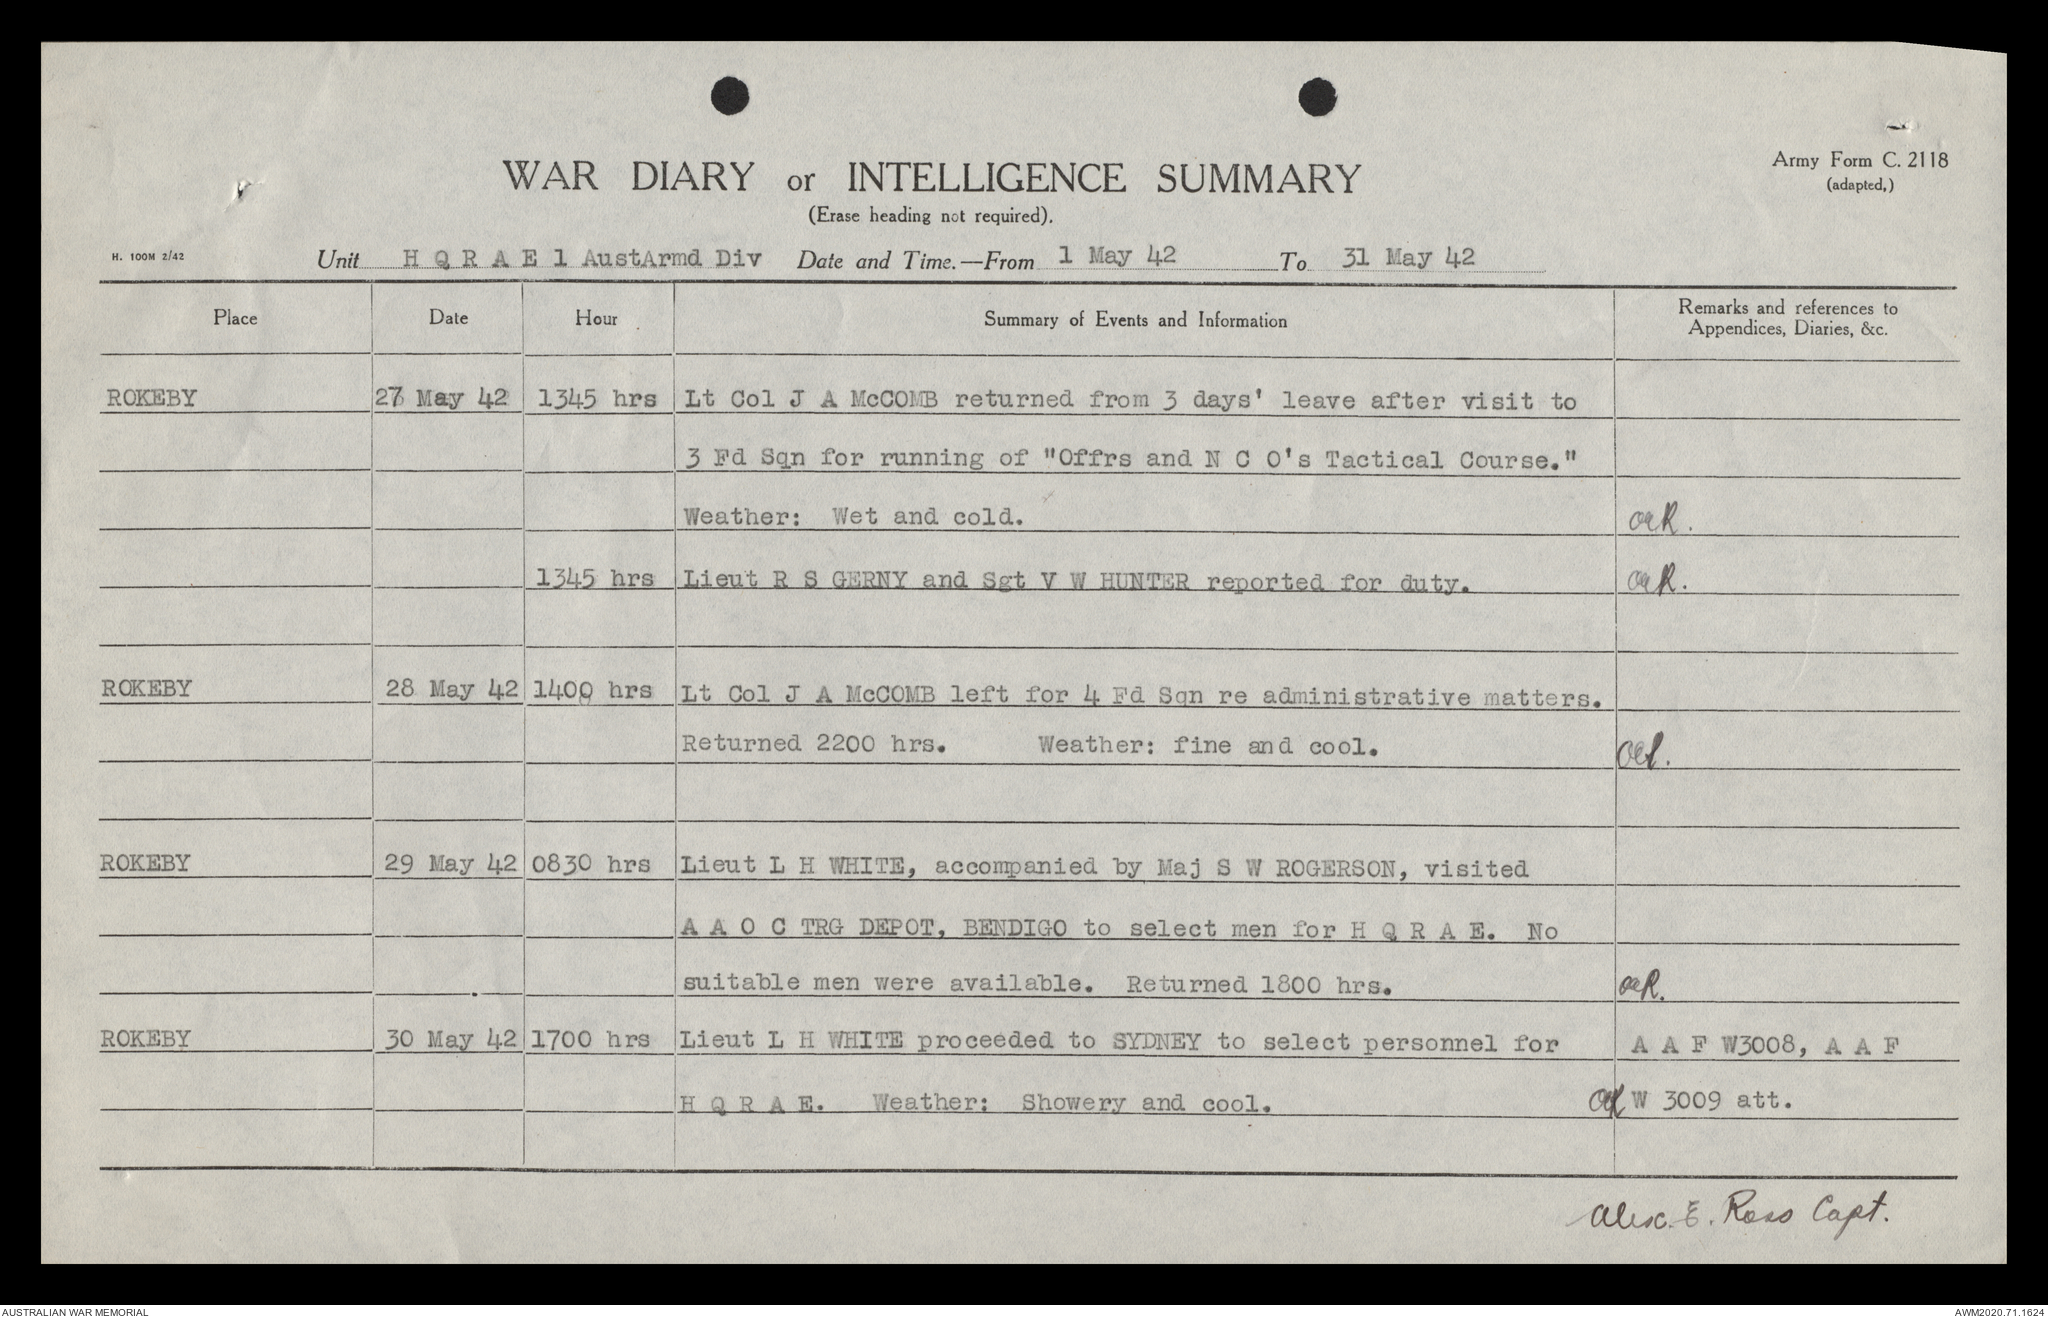 WAR DIARY or INTELLIGENCE SUMMARY
(Erase heading not required).
Army Form C. 2118
(adapted.)
H. 100M 2/42
Unit H Q R A E 1 AustArmd Div Date and Time.—From 1 May 42 To 31 May 42
Place Date Hour Summary of Events and Information Remarks and references to
Appendices, Diaries, &c.
ROKEBY 27 May 42 1345 hrs Lt Col J A McCOMB returned from 3 days' leave after visit to
3 Fd Sqn for running of "Offrs and N C O's Tactical Course."
Weather: Wet and cold.
1345 hrs Lieut R S GERNY and Sgt V W HUNTER reported for duty.
ROKEBY 28 May 42 1400 hrs Lt Col J A McCOMB left for 4 Fd Sqn re administrative matters.
Returned 2200 hrs. Weather: fine and cool.
ROKEBY 29 May 42 0830 hrs Lieut L H WHITE, accompanied by Maj S W ROGERSON, visited
A A O C TRG DEPOT, BENDIGO to select men for H Q R A E. No
suitable men were available. Returned 1800 hrs.
ROKEBY 30 May 42 1700 hrs Lieut L H WHITE proceeded to SYDNEY to select personnel for A A F W3008, A A F
H Q R A E. Weather: Showery and cool. W 3009 att.
E. Ross Capt.
AUSTRALIAN WAR MEMORIAL
AWM2020.71.1624